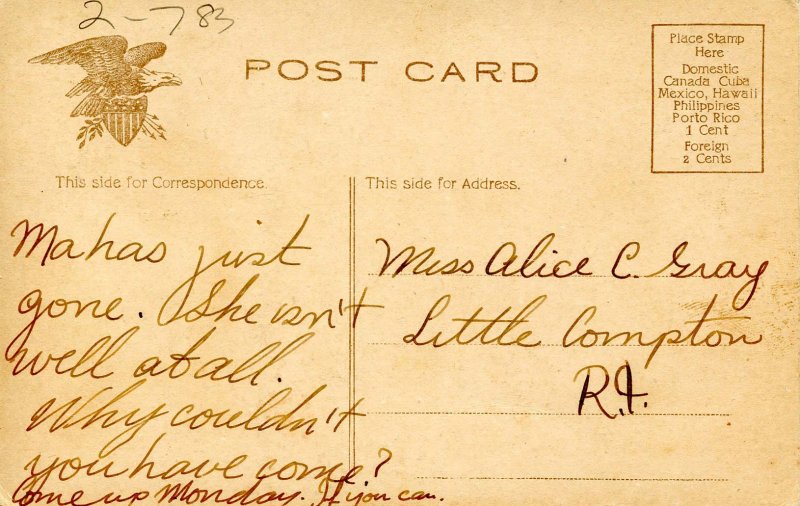 2-783
POST CARD
Place Stamp
Here
Domestic
Canada Cuba
Mexico, Hawaii
Philippines
Porto Rico
1 Cent
Foreign
2 Cents
This side for Correspondence.
Ma has just
gone. She isn't
well at all.
Why couldn't
you have come?
Come up Monday. If you can.
This side for Address.
Miss Alice C. Gray
Little Compton
R.I.